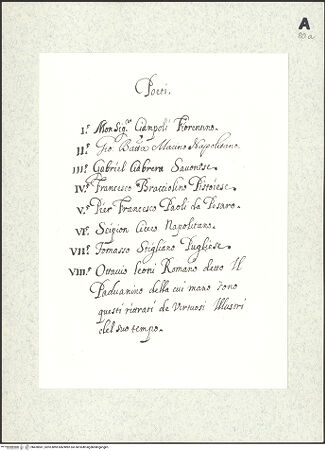 A
80 a
Poeti.
I.° Monsig.r Ciampoli Fiorentino.
II.° Gio. Batta Marino Napolitano.
III.° Gabriel Cabrera Savonese.
IV.° Francesco Bracciolino Pistoiese.
V.° Pier Francesco Paoli da Pesaro.
VI.° Scipion Napolitano.
VII.° Tomasso Stigliano Pugliese.
VIII.° Ottavio Leoni Romano detto Il
Paduanino della cui mano sono
questi ritrati de Virtuosi Illustri
del suo tempo.